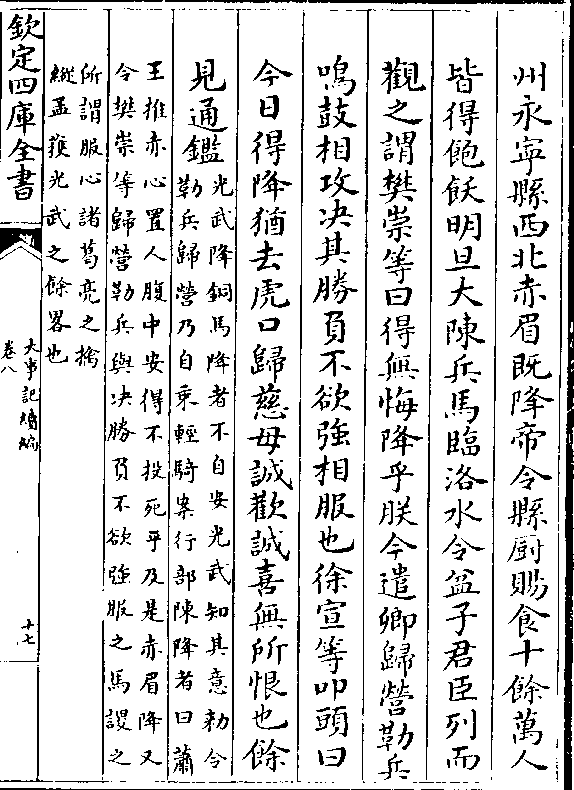 州永寧縣西北赤眉既降帝令縣厨賜食十餘萬人
皆得飽飫明旦大陳兵馬臨洛水令盆子君臣列而
觀之謂樊崇等曰得無悔降乎朕今遣卿歸營勒兵
鳴鼓相攻决其勝負不欲強相服也徐宣等叩頭曰
今日得降猶去虎口歸慈母誠歡誠喜無所恨也餘
見通鑑
光武降銅馬降者不自安光武知其意勅令
勒兵歸營乃自乘輕騎案行部陳降者曰蕭
王推赤心置人腹中安得不投死乎及是赤眉降又
令樊崇等歸營勒兵與决勝負不欲強服之馬謖之
所謂服心諸葛亮之擒
縱孟獲光武之餘畧也
欽定四庫全書
大事記續編
卷八
十七